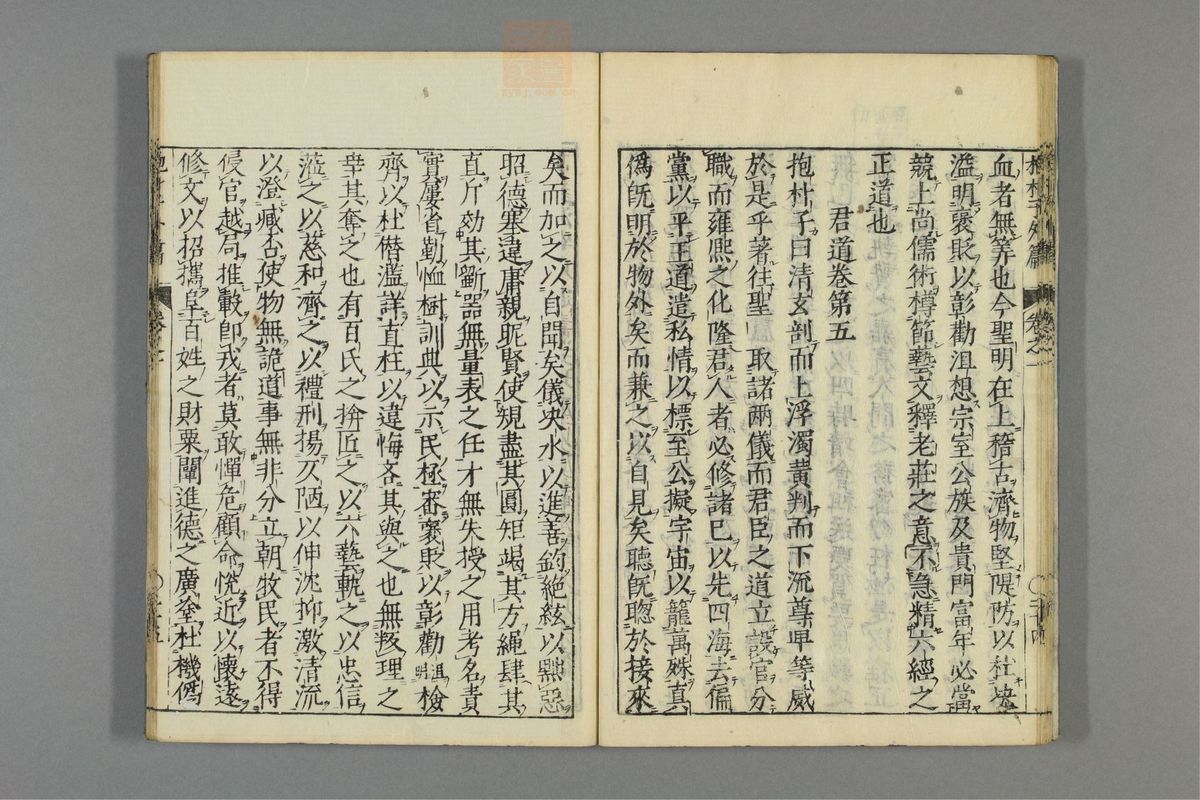 血者無筭也今聖明在上稽古濟物堅隄防以杜決
溢明褒貶以彰勸沮想宗室公族及貴門富年必當
競上尚儒術樽節藝文釋老莊之意不急精六經之
正道也
君道卷第五
抱朴子曰清玄剖而上浮濁黃判而下流尊卑等威
於是乎著往聖取諸兩儀而君臣之道立設官分
職而雍熈之化隆君人者必修諸巳以先四海去偏
黨以平正道遣私情以標至公擬宇宙以籠萬殊真
僞旣明於物外矣而兼之以自見矣聽旣聦於接來
矣而加之以自聞矣儀決水以進善鈞絶絃以黜惡
昭德塞違庸親昵賢使規盡其圓矩竭其方繩肆其
直斤効其斵器無量表之任才無失授之用考名責
實屢省勤恤樹訓典以示民極審褒貶以彰勸沮明檢
齊以杜僭濫詳直枉以違悔吝其與之也無叛理之
幸其奪之也有百氏之揜匠之以六藝軌之以忠信
蒞之以慈和齊之以禮刑揚仄陋以伸沈抑激清流
以澄臧否使物無詭道事無非分立朝牧民者不得
侵官越局推轂卽戎者莫敢憚危顧命悅近以懷遠
修文以招攜阜百姓之財粟闡進德之廣塗杜機僞